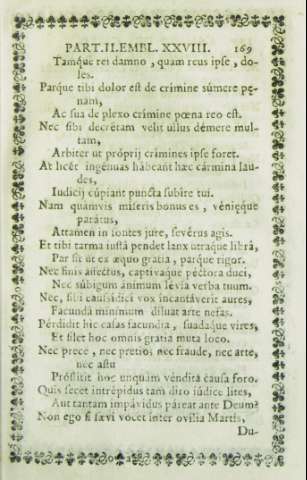 PART.II.EMBL. XXVIII. 169
Tamque rei damno, quam reus ipse, do-
les.
Parque tibi dolor est de crimine súmere pę-
nam,
Ac sua de plexo crimine pœna reo est.
Nec sibi decrétam velit ullus démere mul-
tam,
Arbiter ut próprij crimines ipse foret.
At licèt ingénuas hábeant hæc cármina lau-
des,
Iudicij cúpiant puncta subíre tui.
Nam quamvis miseris bonus es, venięque
parátus,
Attamen in sontes jure, sevérus agis.
Et tibi tarma justâ pendet lanx utraque librâ,
Par sit ut ex æquo gratia, parque rigor.
Nec finis affectus, captivaque péctora duci,
Nec súbigunt ánimum sævia verba tuum.
Nec, sibi causídici vox incantáverit aures,
Facundâ minimùm diluat arte nefas.
Pérdidit hîc casas facundia, suadaque vires,
Et silet hoc omnis gratia muta loco.
Nec prece, nec pretio, nec fraude, nec arte,
nec astu
Próstitit hoc unquam véndita causa foro.
Quis secet intrépidus tam diro júdice lites,
Aut tantam impávidus páreat ante Deum?
Non ego si sævi vocet inter ovilia Martis,
Du-